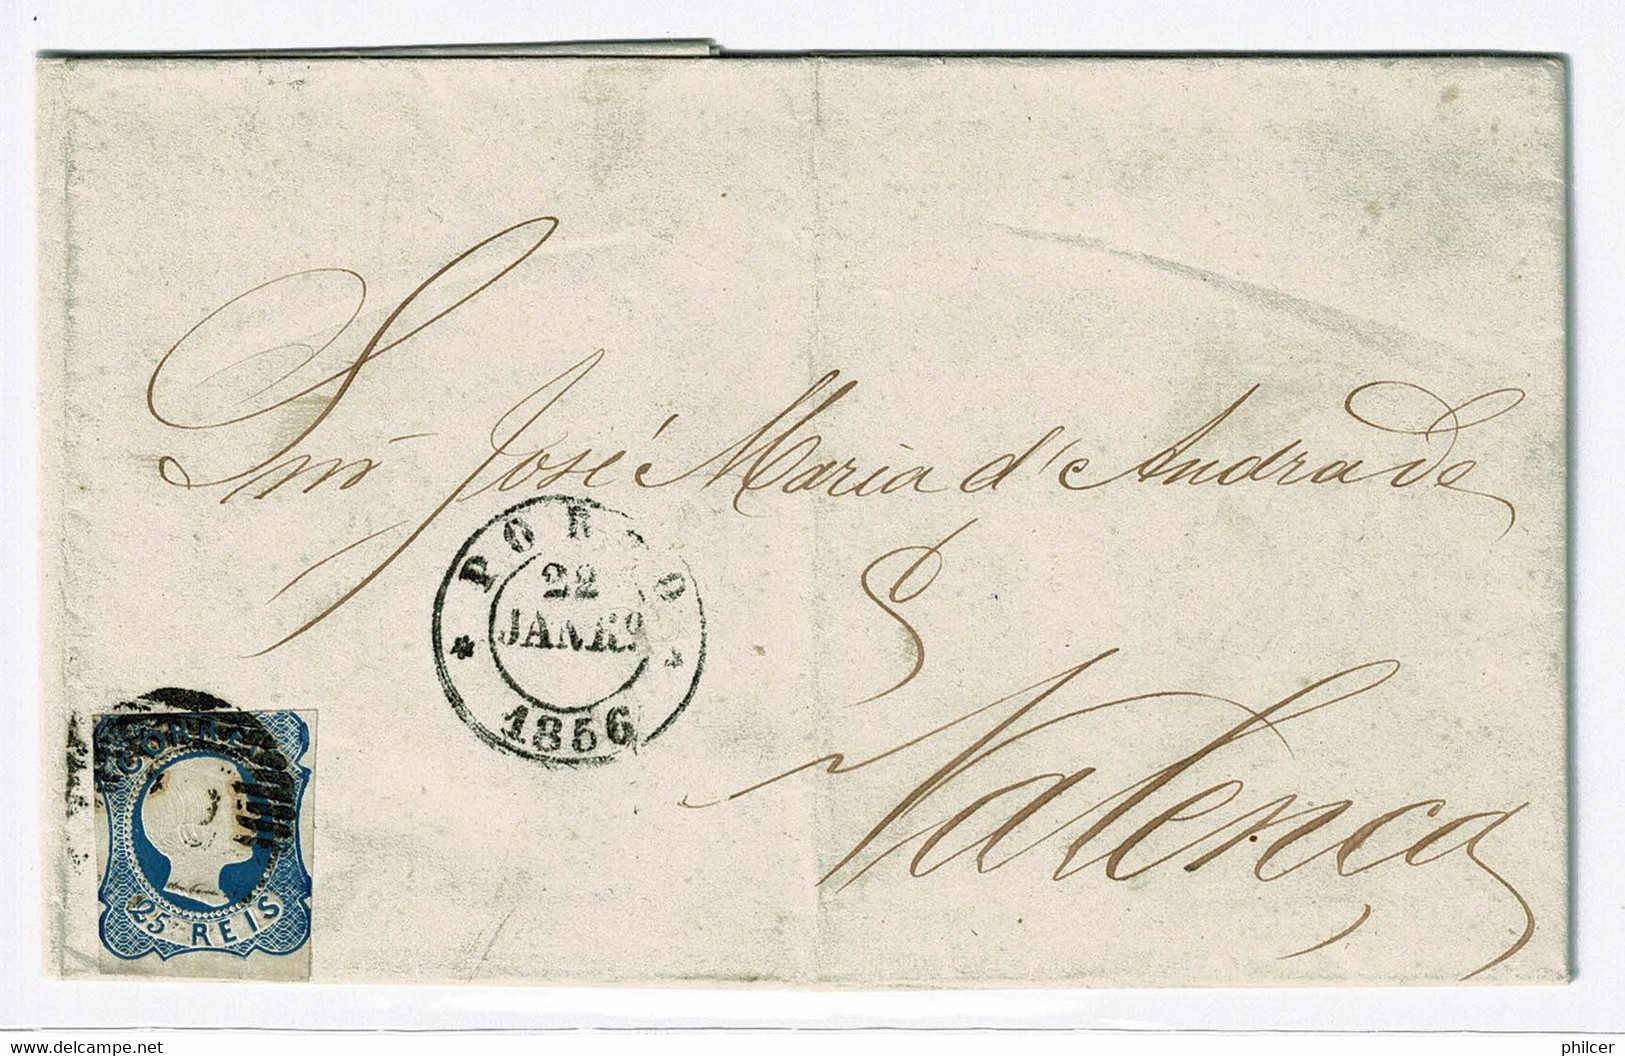 Snr José Maria d'Andrade
PORTO
22
JANRº
1856
Valença
CORREIO
25 REIS
www.delcampe.net
philcer